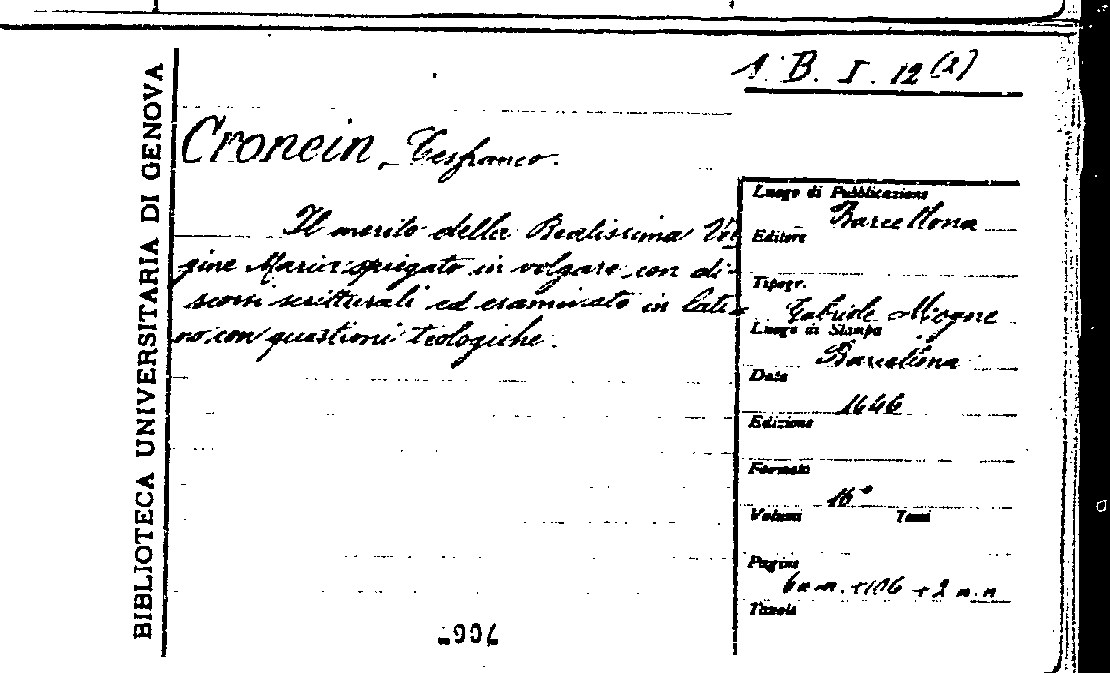 BIBLIOTECA UNIVERSITARIA DI GENOVA
1. B. I. 12 (2)
Cronein, Tesfranco.
Il merito della Beatissima Ver
gine Maria spiegato in volgare con di-
scorsi scritturali ed esaminato in lati-
no con questioni teologiche.
Luogo di Pubblicazione
Barcellona
Editore
Tipogr.
Gabriele
Luogo di Stampa
Barcellona
Data
1646
Edizione
Formato
16°
Volumi Tomi
Pagine
6 n. m. + 106 + 2 n. n
Tavole